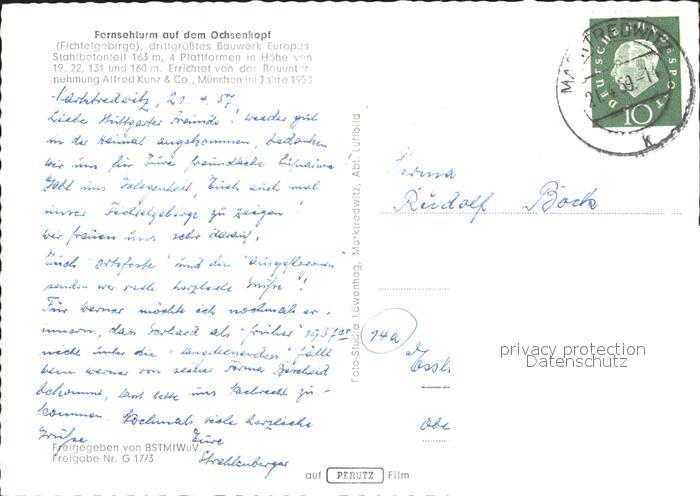 Fernsehturm auf dem Ochsenkopf
(Fichtelgebirge), drittgrößtes Bauwerk Europas
Stahlbetonteil 163 m, 4 Plattformen in Höhe von
19, 22, 131 und 160 m. Errichtet von der Bauunter-
nehmung Alfred Kunz & Co., München im Jahre 1958
Marktredwitz, 21.4.59
Liebe Stuttgarter Freunde! wieder gut
in der Heimat angekommen, bedanken
wir uns für Eure freundliche
Gebt uns Gelegenheit, Euch auch mal
unser Fichtelgebirge zu zeigen!
wir freuen uns sehr darauf.
Euch und den
senden wir viele herzliche Grüße!
Für werner möchte ich nochmals er-
innern, das Gerhard als "früher" 1937er
nicht unter die fällt
wenn werner von seiner Firma Bescheid
bekommt, dann bitte uns Nachricht zu-
kommen. Nochmals viele herzliche
Grüße Eure
Strahlenberger
Freigegeben von BSTMIWuV
Freigabe-Nr. G 17/3
Foto-Studio Löwenhag, Marktredwitz, Abt. Luftbild
auf PERUTZ Film
DEUTSCHE BUNDESPOST
10
MARKTREDWITZ
k
Firma
Rudolf Bock
14a
Essl
obe
privacy protection
Datenschutz